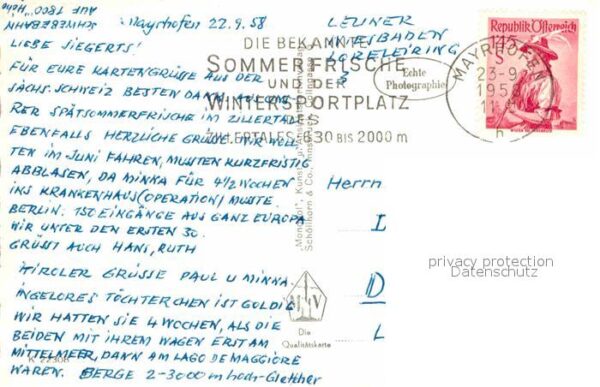 Mayrhofen 22.9.58
LIEBE SIEGERTS!
FÜR EURE KARTENGRÜSSE AUS DER
SÄCHS. SCHWEIZ BESTEN DANK, AUS UNS
RER SPÄTSOMMERFRISCHE IM ZILLERTALE
EBENFALLS HERZLICHE GRÜSSE. WIR WOLL
TEN IM JUNI FAHREN, MUSSTEN KURZFRISTIG
ABBLASEN, DA MINKA FÜR 4½ WOCHEN
INS KRANKENHAUS (OPERATION) MUSSTE.
BERLIN: 150 EINGÄNGE AUS GANZ EUROPA
WIR UNTER DEN ERSTEN 30.
GRÜSST AUCH HANS, RUTH
TIROLER GRÜSSE PAUL U MINKA.
INGELORES TÖCHTERCHEN IST GOLDIG
WIR HATTEN SIE 4 WOCHEN, ALS DIE
BEIDEN MIT IHREM WAGEN ERST AM
MITTELMEER, DANN AM LAGO DE MAGGIORE
WAREN. BERGE 2-3000 m hoch-Gletscher
SCHWEBEBAHN
AUF 1800 Höhe
K 22308
LEUNER
WIESBADEN
LORELEIRING
3
DIE BEKANNTE
SOMMERFRISCHE
UND DER
WINTERSPORTPLATZ
DES
ZILLERTALES 630 BIS 2000 m
Echte
Photographie
MAYRHOFEN
23-9
1958
11
h
Republik Österreich
1.45
S
"Mondial", Kunst- u. Ansichtskartenverlag
Schöllhorn & Co., Innsbruck
Herrn
I
D
L
M V
Die
Qualitätskarte
privacy protection
Datenschutz